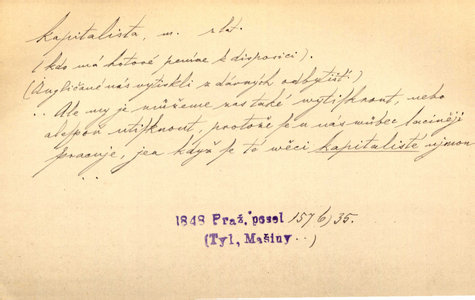 kapitalista, m. z lat.
(kdo má hotové peníze k disposici).
(Angličané nás vytiskli z dávných odbytišť)
.. Ale my je můžeme zas také vytisknout, nebo
alespoň utisknout, protože se u nás vůbec laciněji
pracuje, jen když se té věci kapitalisté ujmou
...
1848 Praž. posel 157 6/35.
(Tyl, Mašiny ..)